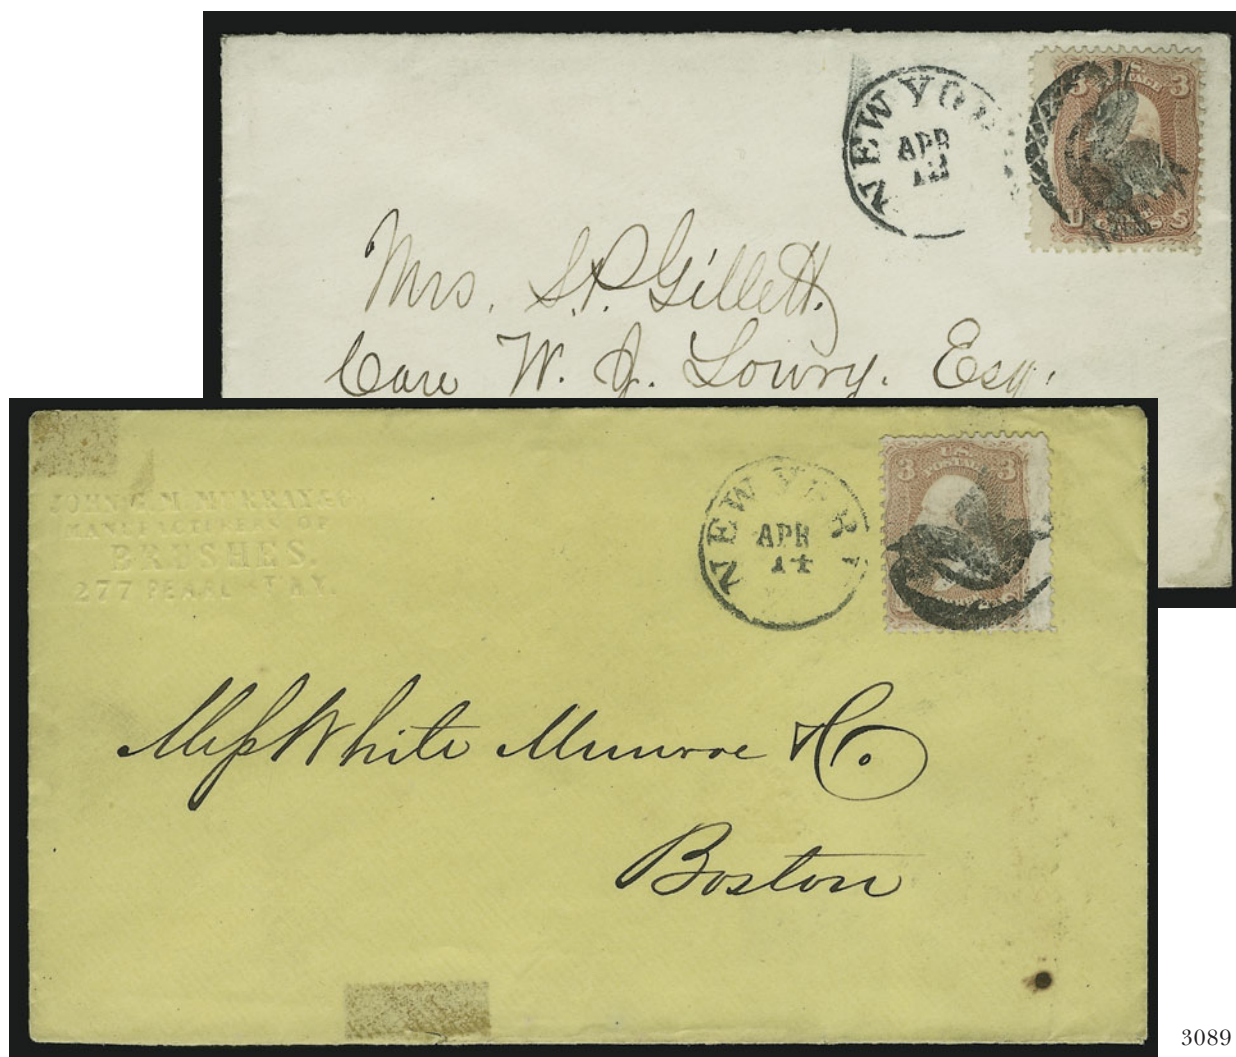 NEW YO
APR
3 3
U S
Mrs. S. P. Gillett.
Care W. J. Lowry. Esq.
JOHN G. M. MURRAY & C
MANUFACTURERS OF
BRUSHES.
277 PEARL ST N.Y.
NEW YORK
APR
14
3 U.S. 3
POSTAGE
Mess White Munroe & Co.
Boston
3089